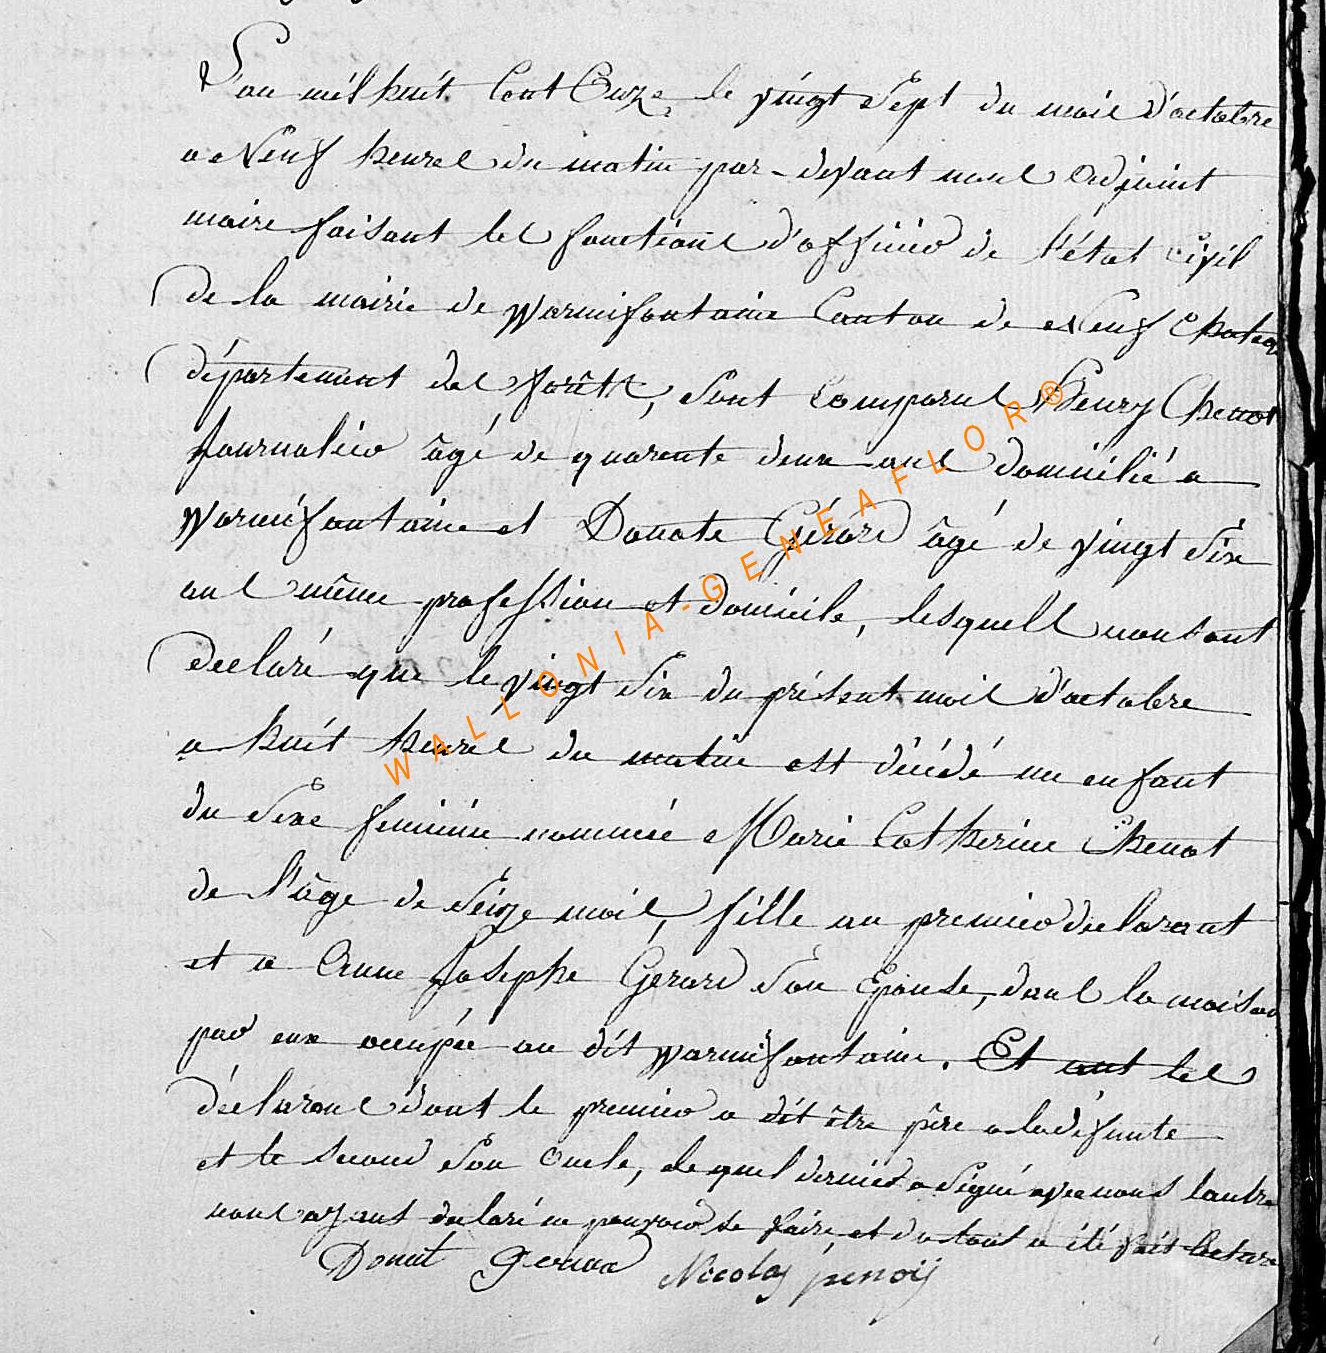 L'an mil huit Cent Onze le vingt Sept du mois d'octobre
a Neuf heures du matin par-devant nous Adjoint
maire faisant les fonctions d'officier de l'état civil
de la mairie de Warmifontaine Canton de Neuf Chateau
département des forêts, Sont Comparus Henry Chenot
Journalier âgé de quarente deux ans domicilié a
Warmifontaine et Donate Gérard âgé de vingt Six
ans même profession et domicile, lesquels nous ont
declaré que le vingt Six du présent mois d'octobre
a huit heures du matin est décédé un enfant
du Sexe feminin nommée Marie Catherine Chenot
de l'âge de Seize mois, fille au premier declarant
et a Anne Josephe Gerard Son Epouse, dans la maison
par eux occupée au dit Warmifontaine. Et ont les
déclarans dont le premier a dit être père a la défunte
et le second Son Oncle, le quel dernier a Signé avec nous l'autre
nous ayant declaré ne pouvoir le faire, et du tout a été fait lecture
Donat Gerard Nicolas
WALLONIA-GENEAFLOR®